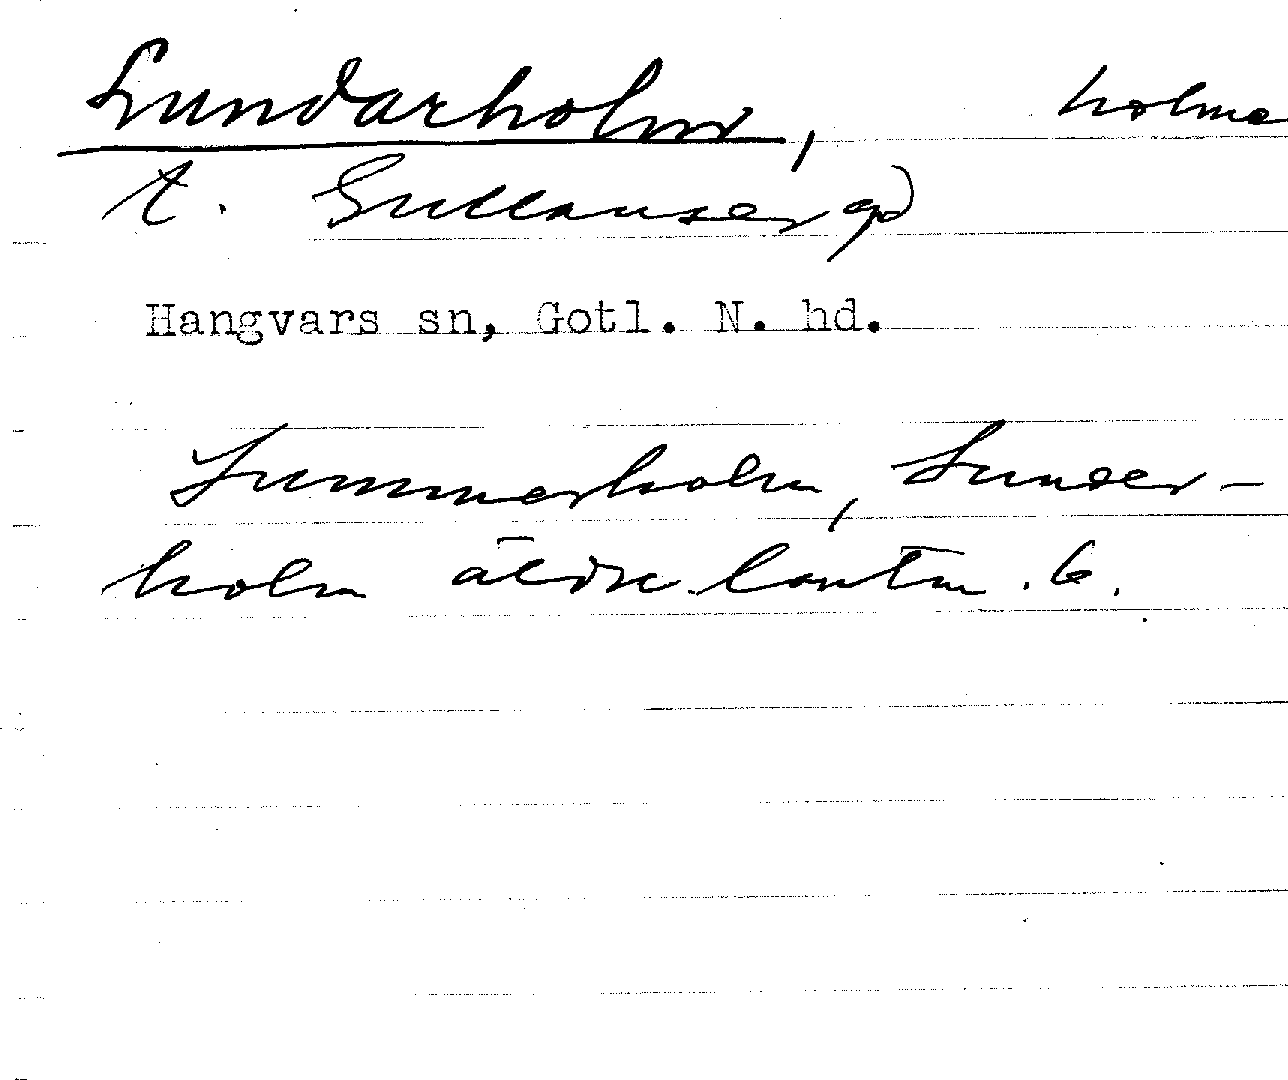 Lundarholm, holme
t. Gullauser gd
Hangvars sn, Gotl. N. hd.
Lummerholm, Lunder-
holm äldre lantm. b.